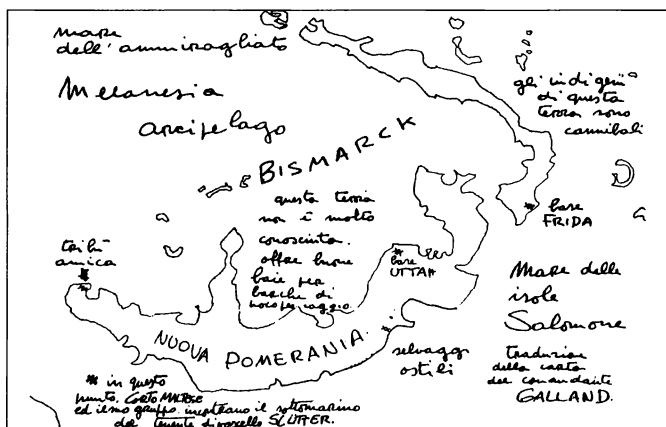 mare
dell'ammiragliato
Melanesia
arcipelago
BISMARCK
gli indigeni
di questa
terra sono
cannibali
base
FRIDA
questa terra
non è molto
conosciuta.
offre buone
baie per
barche di
poco pescaggio.
base
UTTAH
tribù
amica
NUOVA POMERANIA.
selvaggi
ostili
Mare delle
isole
Salomone
traduzione
della carta
del comandante
GALLAND.
* in questo
punto, CORTO MALTESE
ed il suo gruppo incontrano il sottomarino
del tenente di vascello SLÜTTER.